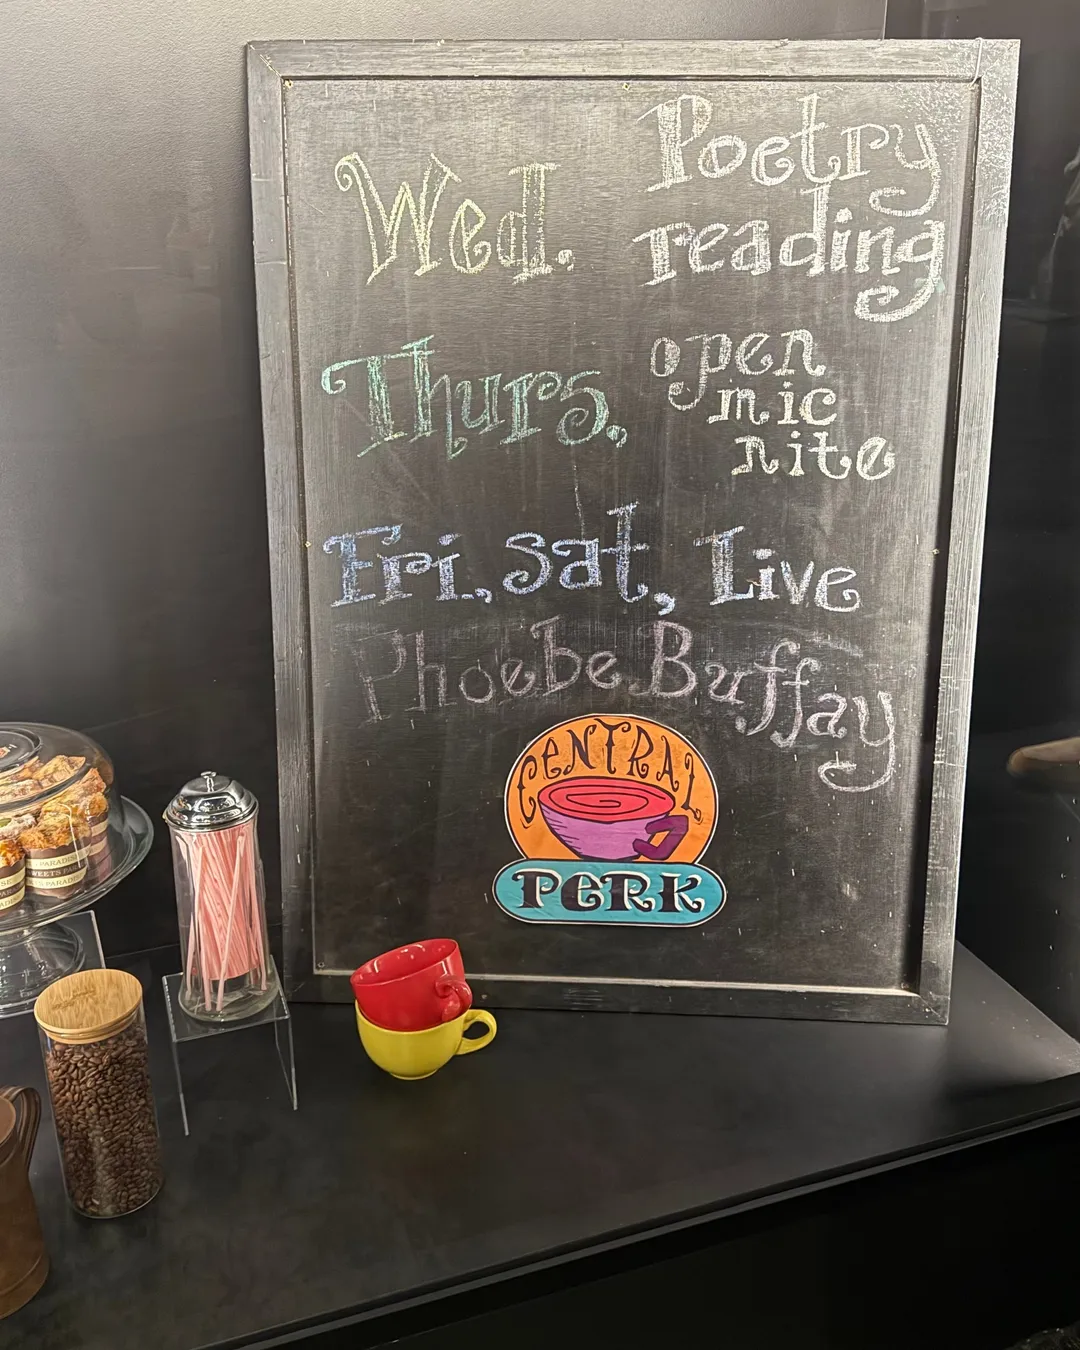 Wed. Poetry
reading
Thurs. open
mic
nite
Fri, Sat, Live
Phoebe Buffay
CENTRAL
PERK